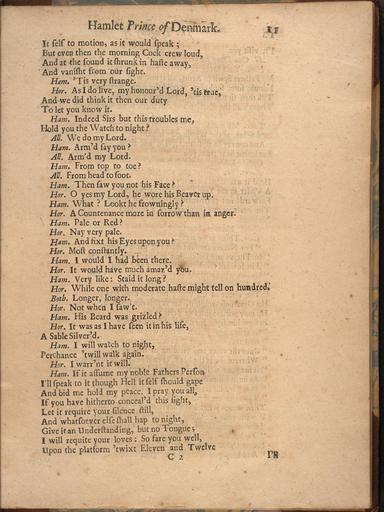 Hamlet Prince of Denmark. 11
It self to motion, as it would speak;
But even then the morning Cock crew loud,
And at the sound it shrunk in haste away,
And vanisht from our sight.
Ham. 'Tis very strange.
Hor. As I do live, my honour'd Lord, 'tis true,
And we did think it then our duty
To let you know it.
Ham. Indeed Sirs but this troubles me,
Hold you the Watch to night?
All. We do my Lord.
Ham. Arm'd say you?
All. Arm'd my Lord.
Ham. From top to toe?
All. From head to foot.
Ham. Then saw you not his Face?
Hor. O yes my Lord, he wore his Beaver up.
Ham. What? Lookt he frowningly?
Hor. A Countenance more in sorrow than in anger.
Ham. Pale or Red?
Hor. Nay very pale.
Ham. And fixt his Eyes upon you?
Hor. Most constantly.
Ham. I would I had been there.
Hor. It would have much amaz'd you.
Ham. Very like: Staid it long?
Hor. While one with moderate haste might tell an hundred.
Both. Longer, longer.
Hor. Not when I saw't.
Ham. His Beard was grizled?
Hor. It was as I have seen it in his life,
A Sable Silver'd.
Ham. I will watch to night,
Perchance 'twill walk again.
Hor. I warr'nt it will.
Ham. If it assume my noble Fathers Person
I'll speak to it though Hell it self should gape
And bid me hold my peace. I pray you all,
If you have hitherto conceal'd this sight,
Let it require your silence still,
And whatsoever else shall hap to night,
Give it an Understanding, but no Tongue;
I will requite your loves: So fare you well,
Upon the platform 'twixt Eleven and Twelve
C 2 I'll